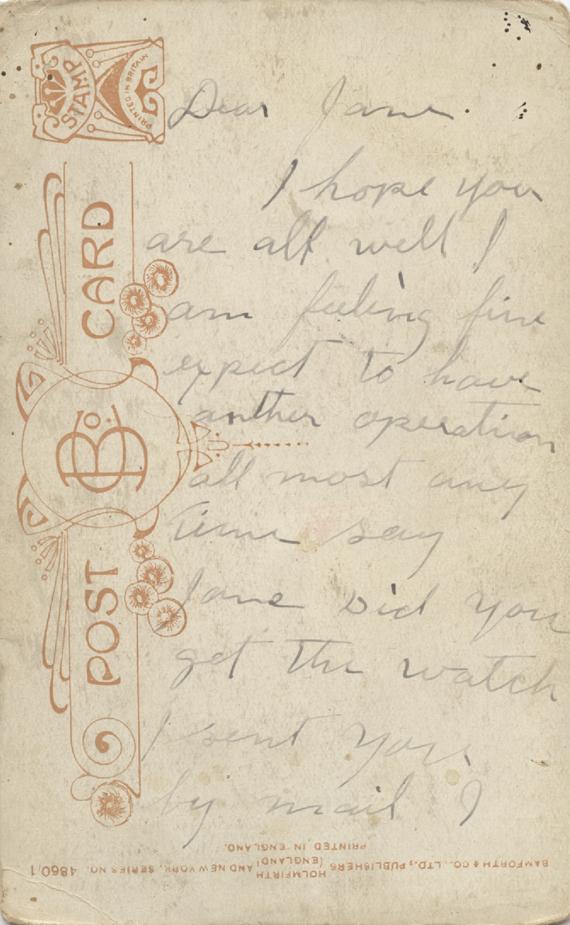 STAMP
PRINTED IN BRITAIN
POST CARD
B. Co.
Dear Jane
I hope you
are all well I
am feeling fine
expect to have
anther operation
all most any
time say
Jane did you
get the watch
I sent you
by mail I
BAMFORTH & CO., LTD., PUBLISHERS HOLMFIRTH (ENGLAND) AND NEW YORK. SERIES NO. 4860/1
PRINTED IN ENGLAND.